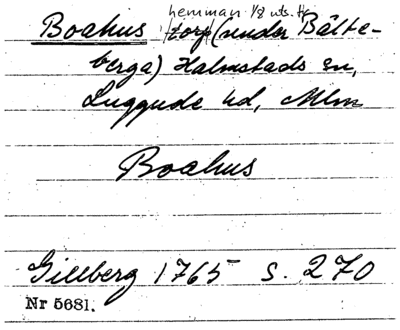 hemman 1/8 uts. fr
Boahus torp (under Bälte-
berga) Halmstads sn,
Luggude hd, Mlm
Boahus
Gillberg 1765 s. 270
Nr 5681.